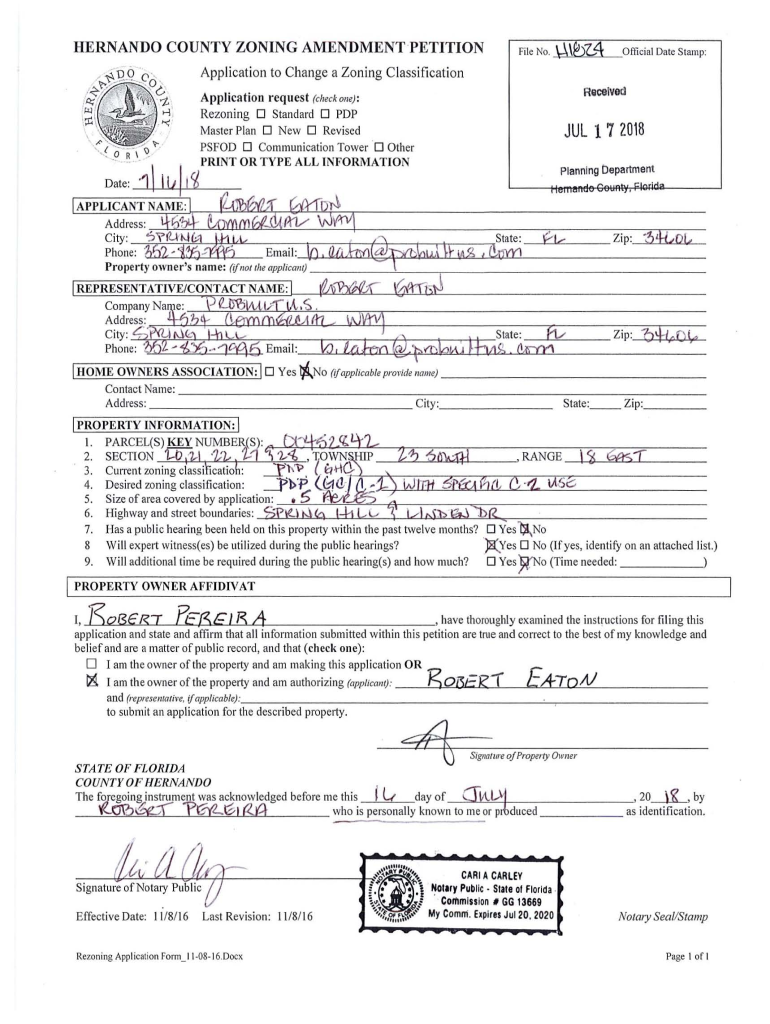 HERNANDO COUNTY ZONING AMENDMENT PETITION
File No. H1824 Official Date Stamp:
HERNANDO COUNTY FLORIDA
Application to Change a Zoning Classification
Application request (check one):
Rezoning ☐ Standard ☐ PDP
Master Plan ☐ New ☐ Revised
PSFOD ☐ Communication Tower ☐ Other
PRINT OR TYPE ALL INFORMATION
Received
JUL 17 2018
Planning Department
Hernando County, Florida
Date: 7/16/18
APPLICANT NAME: ROBERT EATON
Address: 4534 COMMERCIAL WAY
City: SPRING HILL State: FL Zip: 34606
Phone: 352-835-7995 Email: b.eaton@probuiltus.com
Property owner's name: (if not the applicant)
REPRESENTATIVE/CONTACT NAME: ROBERT EATON
Company Name: PROBUILT U.S.
Address: 4534 COMMERCIAL WAY
City: SPRING HILL State: FL Zip: 34606
Phone: 352-835-7995 Email: b.eaton@probuiltus.com
HOME OWNERS ASSOCIATION: ☐ Yes ☒ No (if applicable provide name)
Contact Name:
Address: City: State: Zip:
PROPERTY INFORMATION:
1. PARCEL(S) KEY NUMBER(S): 00452842
2. SECTION 20,21,22,27 & 28, TOWNSHIP 23 SOUTH, RANGE 18 EAST
3. Current zoning classification: PDP (GHC)
4. Desired zoning classification: PDP (GC/C-1) WITH SPECIFIC C-2 USE
5. Size of area covered by application: .5 ACRES
6. Highway and street boundaries: SPRING HILL & LINDEN DR
7. Has a public hearing been held on this property within the past twelve months? ☐ Yes ☒ No
8 Will expert witness(es) be utilized during the public hearings? ☒ Yes ☐ No (If yes, identify on an attached list.)
9. Will additional time be required during the public hearing(s) and how much? ☐ Yes ☒ No (Time needed: )
PROPERTY OWNER AFFIDIVAT
I, ROBERT PEREIRA, have thoroughly examined the instructions for filing this
application and state and affirm that all information submitted within this petition are true and correct to the best of my knowledge and
belief and are a matter of public record, and that (check one):
☐ I am the owner of the property and am making this application OR
☒ I am the owner of the property and am authorizing (applicant): ROBERT EATON
and (representative, if applicable):
to submit an application for the described property.
Signature of Property Owner
STATE OF FLORIDA
COUNTY OF HERNANDO
The foregoing instrument was acknowledged before me this 16 day of JULY, 20 18, by
ROBERT PEREIRA who is personally known to me or produced as identification.
Signature of Notary Public
NOTARY PUBLIC
STATE OF FLORIDA
CARI A CARLEY
Notary Public - State of Florida
Commission # GG 13669
My Comm. Expires Jul 20, 2020
Effective Date: 11/8/16 Last Revision: 11/8/16 Notary Seal/Stamp
Rezoning Application Form_11-08-16.Docx Page 1 of 1